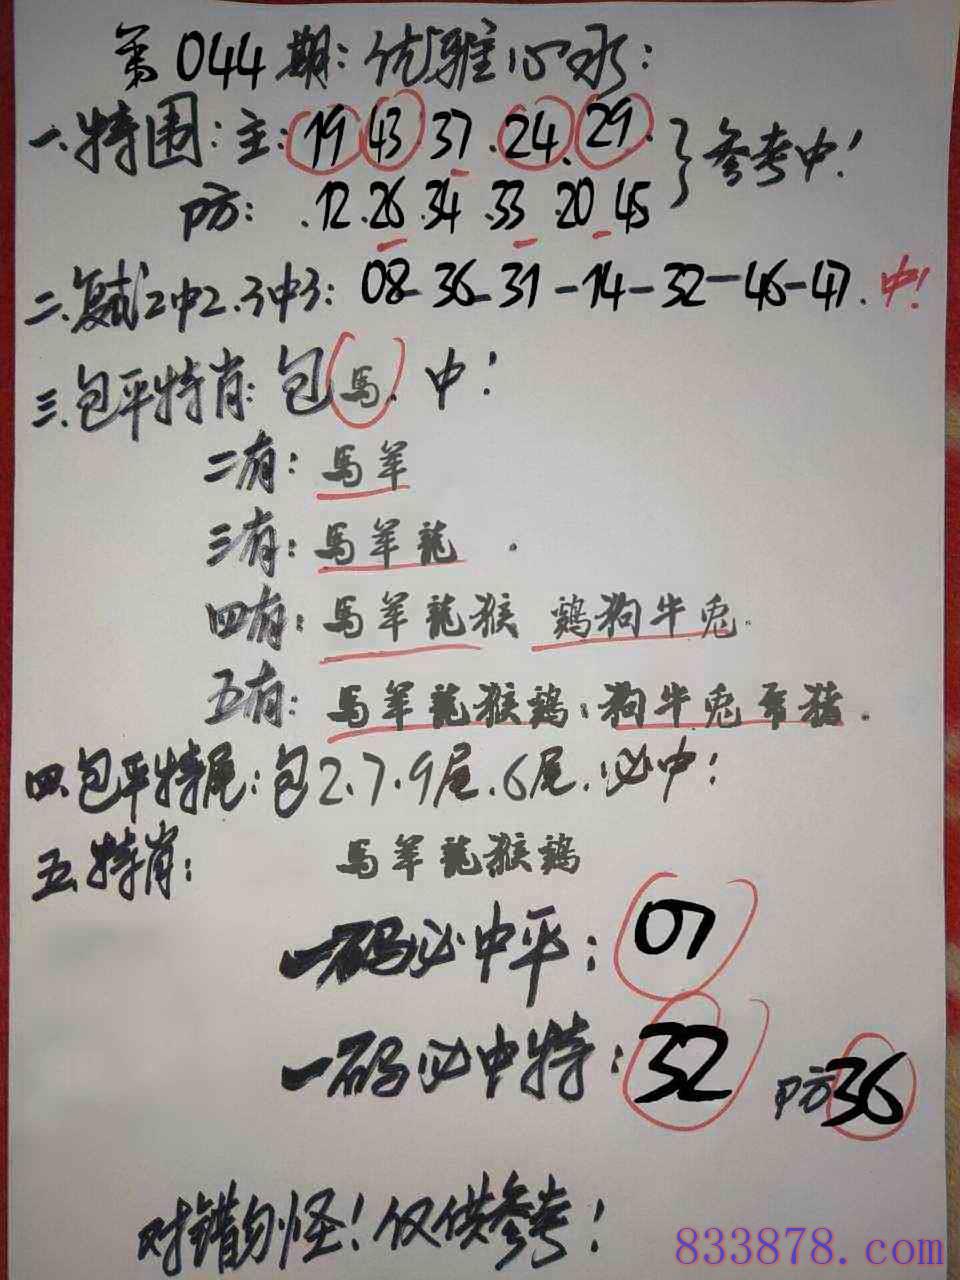 第044期:优雅心水:
一.特围:主:19 43 37.24.29.
防:.12.26.34.33.20.45
参考中!
二.复试2中2.3中3:08-36-31-14-32-46-47.中!
三.包平特肖:包馬.中!
二有:馬羊
三有:馬羊龍.
四有:馬羊龍猴 鷄狗牛兎.
五有:馬羊龍猴鷄:狗牛兎 猪.
四.包平特尾:包2.7.9尾.6尾.必中!
五.特肖:馬羊龍猴鷄
一码必中平:07
一码必中特:32 防36
对错勿怪!仅供参考!
833878.com